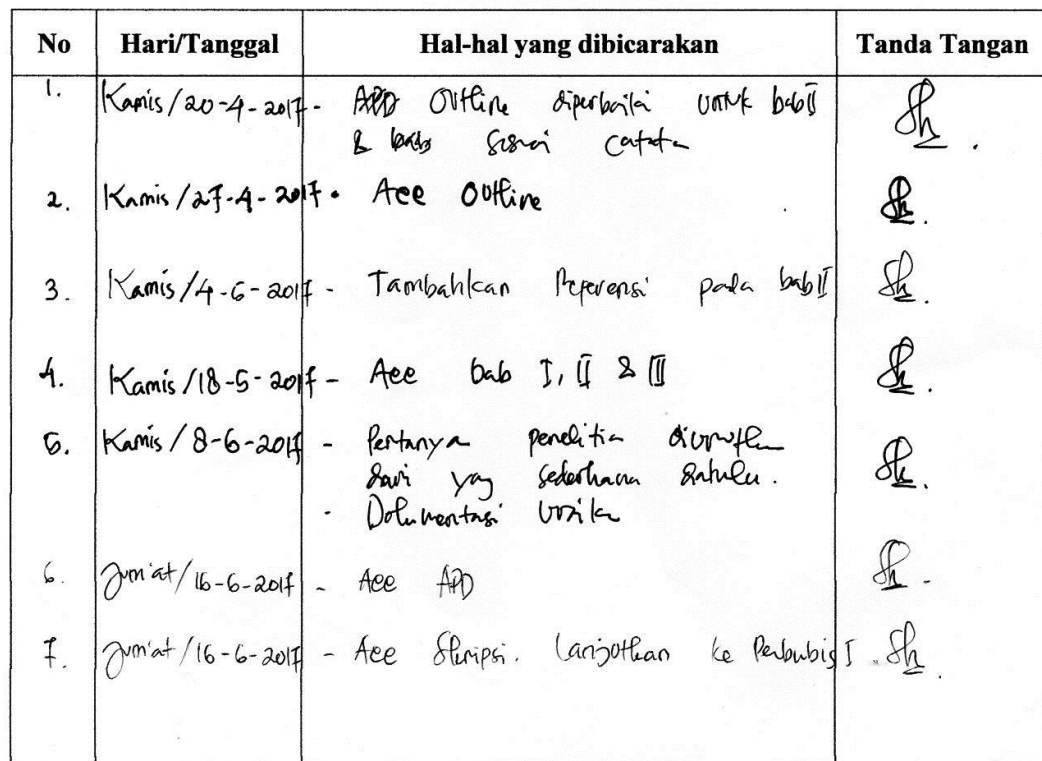 No Hari/Tanggal Hal-hal yang dibicarakan Tanda Tangan
1. Kamis/20-4-2017 - APD Outline diperbaiki untuk bab II
& bab sesuai catata
2. Kamis/27-4-2017. Acc Outline
3. Kamis/4-6-2017 - Tambahkan Referensi pada bab II
4. Kamis/18-5-2017 - Acc bab I, II & III
5. Kamis/8-6-2017 - Pertanya penelitia diurutkan
dari yang sederhana dahulu.
- Dokumentasi
6. Jum'at/16-6-2017 - Acc APD
7. Jum'at/16-6-2017 - Acc Skripsi. Lanjutkan ke I